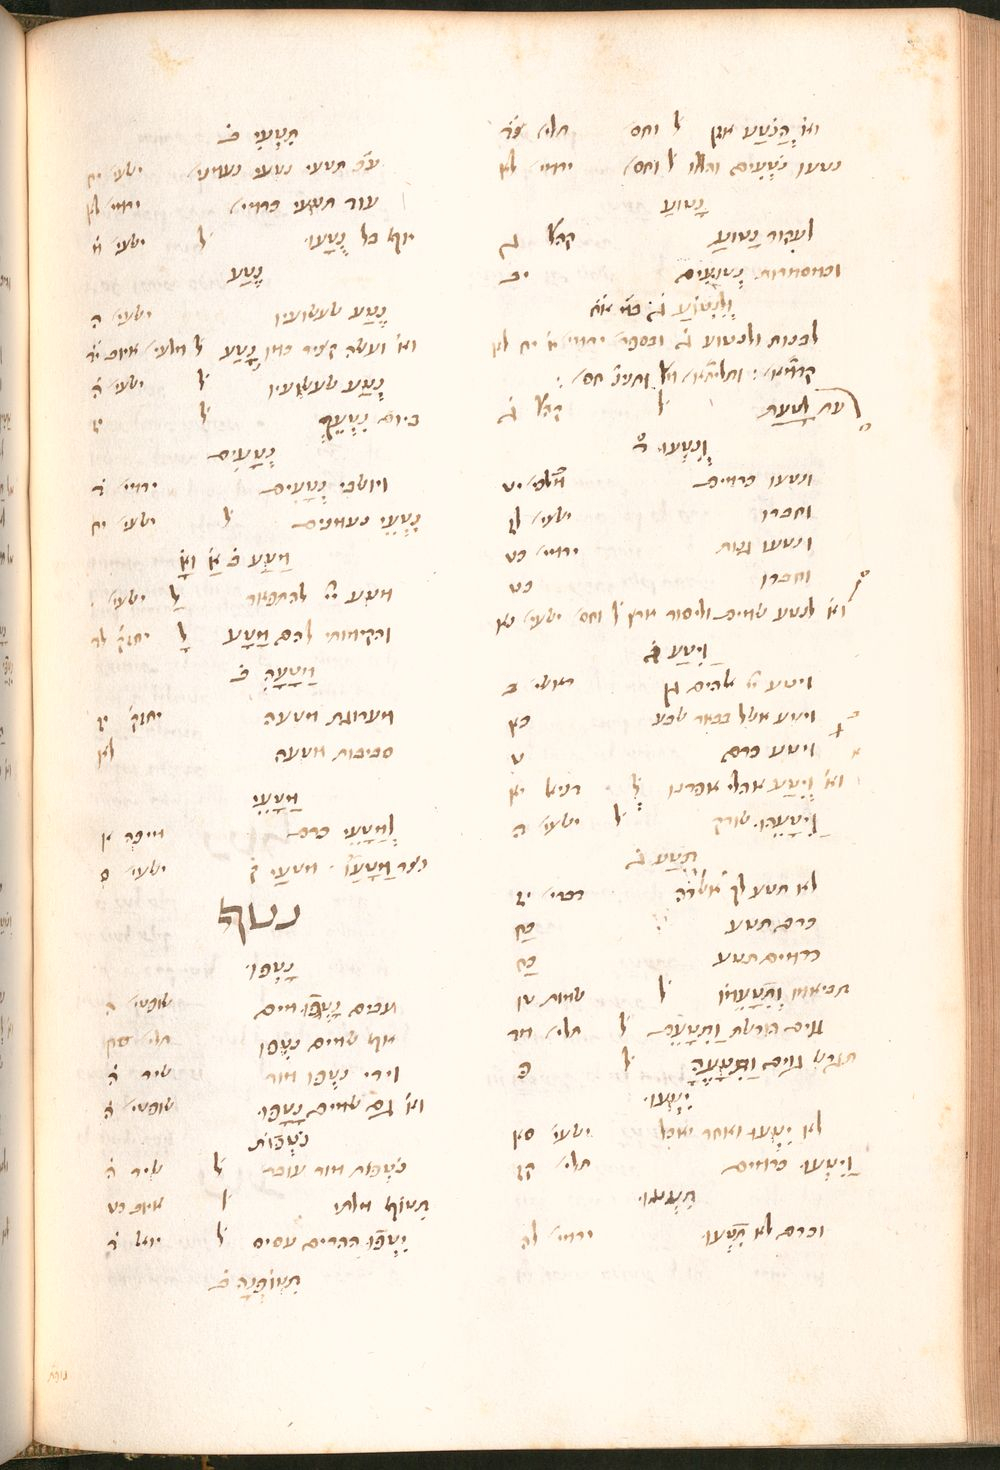 וא׳ הֲנֹטַע אזן ל׳ וחס׳ תלי׳ צד
נטעו נֹטְעִים וחללו ל׳ וחס׳ ירמי׳ לא
נָטוּעַ
לעקור נָטוּעַ קהל׳ ג
ובמסמרות נְטוּעִים יב
וְלִנְטוֹעַ ג׳
לבנות ולנטוע ג׳ ובספר׳ ירמי׳ א׳ יח לא
עת לָטַעַת ל׳ קהל׳ ג
וְנָטְעוּ ד׳
ונטעו כרמים יט
וחברו ישעי׳ לז
ונטעו גנות ירמי׳ כט
וחברו כט
וא׳ לנטע שמים וליסוד ארץ ל׳ וחס׳ ישעי׳ נא
וַיִּטַּע ג׳
ויטע יי׳ אלהים גן ראשי׳ ב
ויטע אשל בבאר שבע כא
ויטע כרם ט
וא׳ וְיִטַּע אהלי אפדנו ל׳ דניא׳ יא
וַיִּטָּעֵהוּ שורק ל׳ ישעי׳ ה
תִטַּע ג׳
לא תטע לך אשרה דברי׳ יו
כרם תטע כח
כרמים תטע כח
תביאמו וְתִטָּעֵמוֹ ל׳ שמות טו
גוים הורשת וַתִּטָּעֵם ל׳ תלי׳ מד
תגרש גוים וַתִּטָּעֶהָ ל׳ פ
יִטְּעוּ
לא יִטְּעוּ ואחר יאכל ישעי׳ סה
וַיִּטְּעוּ כרמים תלי׳ קז
תִטְּעוּ
וכרם לא תִטָּעוּ ירמי׳ לה
תִּטְּעִי ב׳
על׳ תטעי נטעי נעמני׳ ישעי׳ יז
עוד תטעי כרמי׳ ירמי׳ לא
אף בל נִטָּעוּ ל׳ ישעי׳ מ
נֶטַע
נֶטַע שעשועיו ישעי׳ ה
וא׳ ועשה קציר כמו נָטַע ל׳ מלעי׳ איוב יד
נְטַע שעשועיו ל׳ ישעי׳ ה
ביום נִטְעֵךְ ל׳ יז
נְטָעִים
ויושבי נְטָעִים
נִטְעֵי נעמנים ל׳ ישעי׳ יז
מַטַּע ב׳
מטע יי׳ להתפאר ל׳ ישעי׳
והקימותי להם מַטָּע ל׳ יחזק׳ לד
מַטָּעָהּ ב׳
מערוגת מטעה יחזק׳ יז
סביבות מטעה לא
מַטָּעֵי
לְמַטָּעֵי כרם מיכה א
נצר מַטָּעַו מטעי ק׳ ישעי׳ ס
נטף
נָטְפוּ
עבים נָטְפוּ מים שופטי׳ ה
אף שמים נטפו תלי׳ סח
וידי נטפו מור שיר ה
וא׳ גם שמים נָטָפוּ שופטי׳ ה
נֹטְפוֹת
נֹטְפוֹת מור עובר ל׳ שיר ה
תִּטּוֹף מלתי ל׳ איוב כט
יִטְּפוּ ההרים עסיס ל׳ יואל ד
תִּטֹּפְנָה ב׳